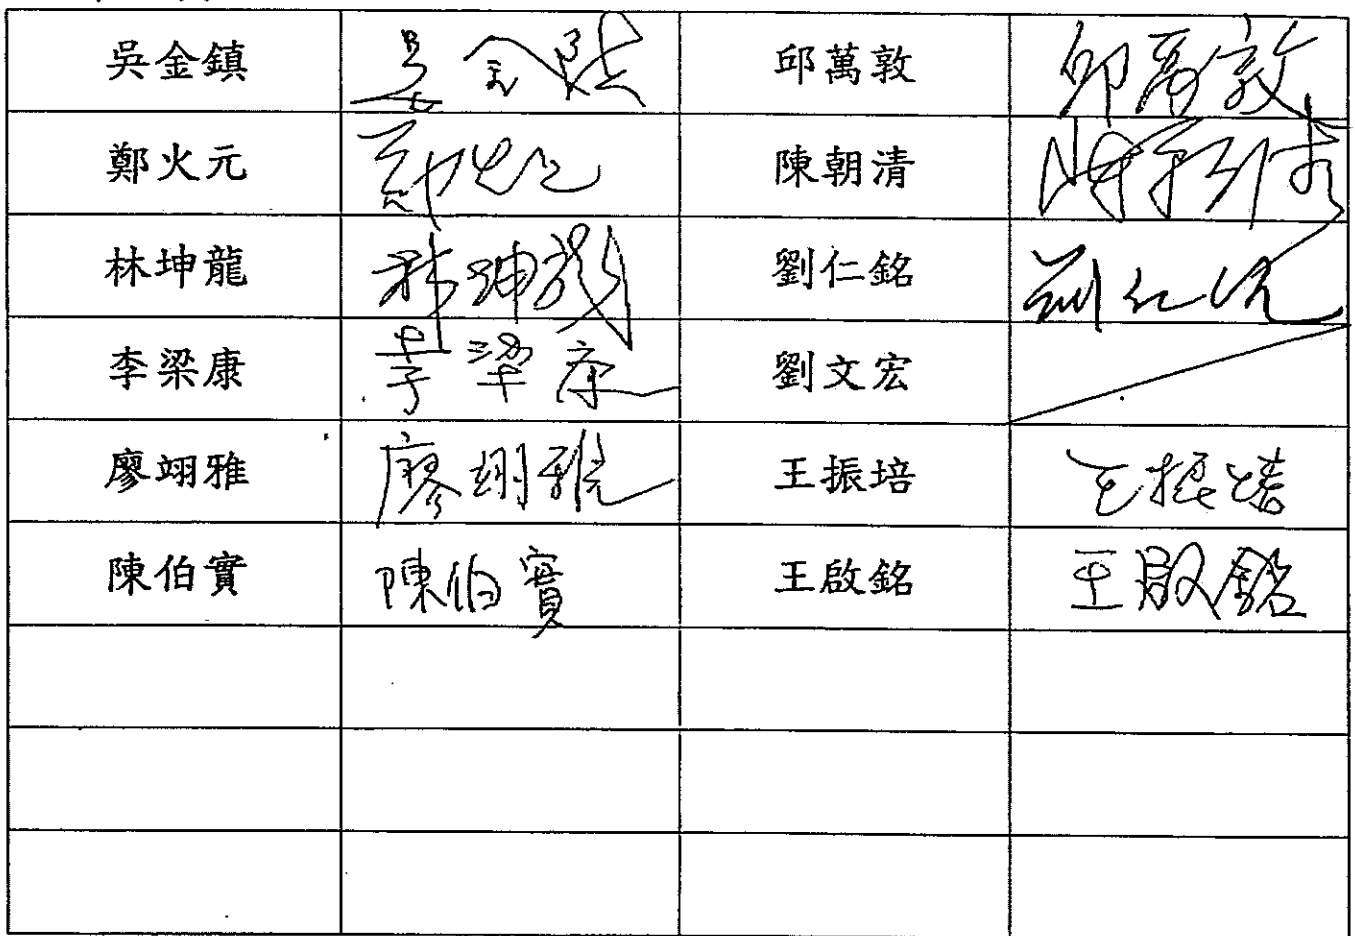 吳金鎮 吳金鎮 邱萬敦 邱萬敦
鄭火元 鄭火元 陳朝清 陳朝清
林坤龍 林坤龍 劉仁銘 劉仁銘
李梁康 李梁康 劉文宏
廖翊雅 廖翊雅 王振培 王振培
陳伯實 陳伯實 王啟銘 王啟銘